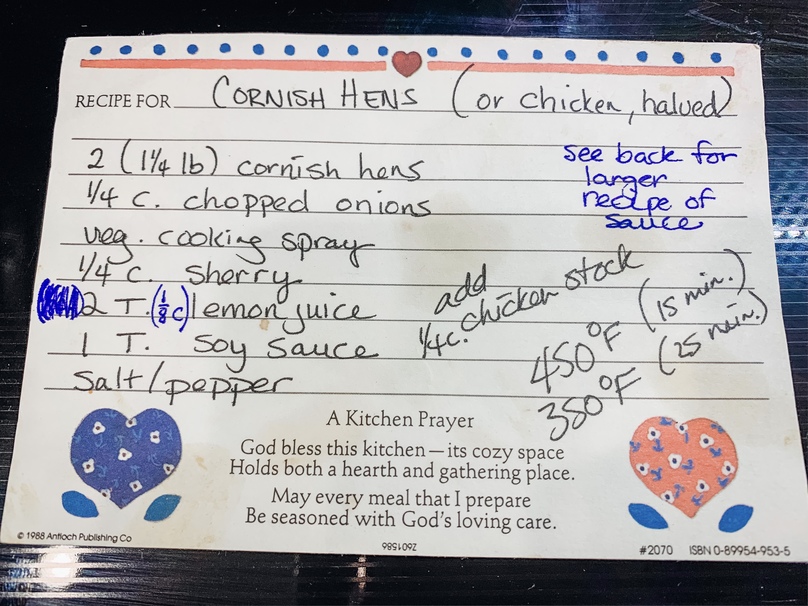 RECIPE FOR CORNISH HENS (or chicken, halved)
2 (1 1/4 lb) cornish hens
1/4 c. chopped onions
veg. cooking spray
1/4 c. sherry
2 T. (1/8 c) lemon juice
1 T. soy sauce
salt/pepper
see back for
larger
recipe of
sauce
add
1/4c. chicken stock
450°F (15 min.)
350°F (25 min.)
A Kitchen Prayer
God bless this kitchen—its cozy space
Holds both a hearth and gathering place.
May every meal that I prepare
Be seasoned with God's loving care.
© 1988 Antioch Publishing Co
#2070 ISBN 0-89954-953-5